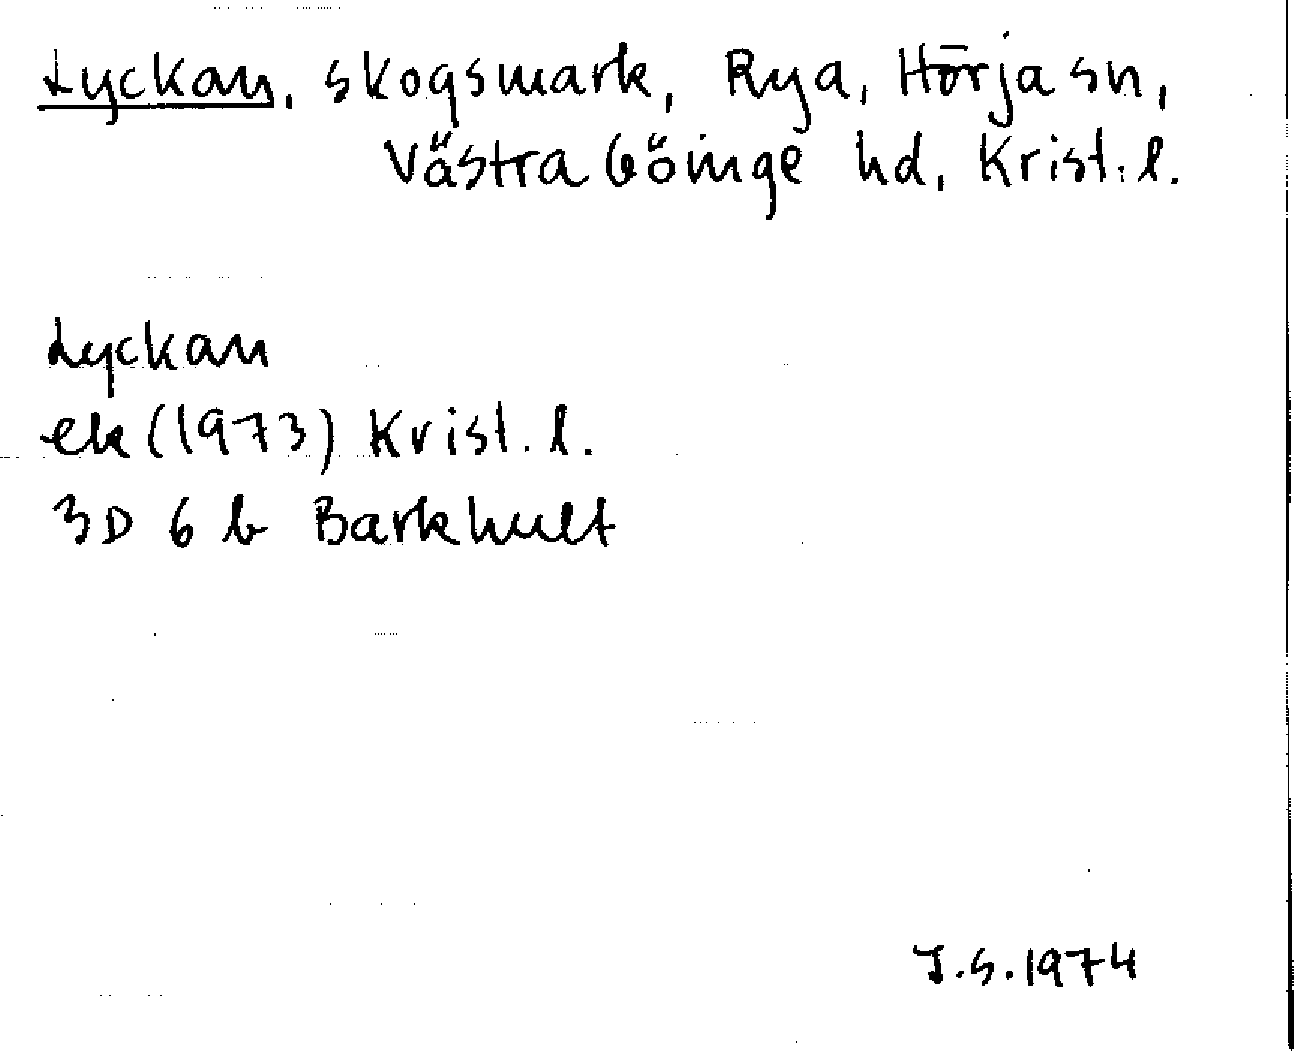 Lyckan, skogsmark, Rya, Hörja sn,
Västra Göinge hd, Krist. l.
Lyckan
ek (1973) Krist. l.
3D 6 b Barkhult
J.S. 1974